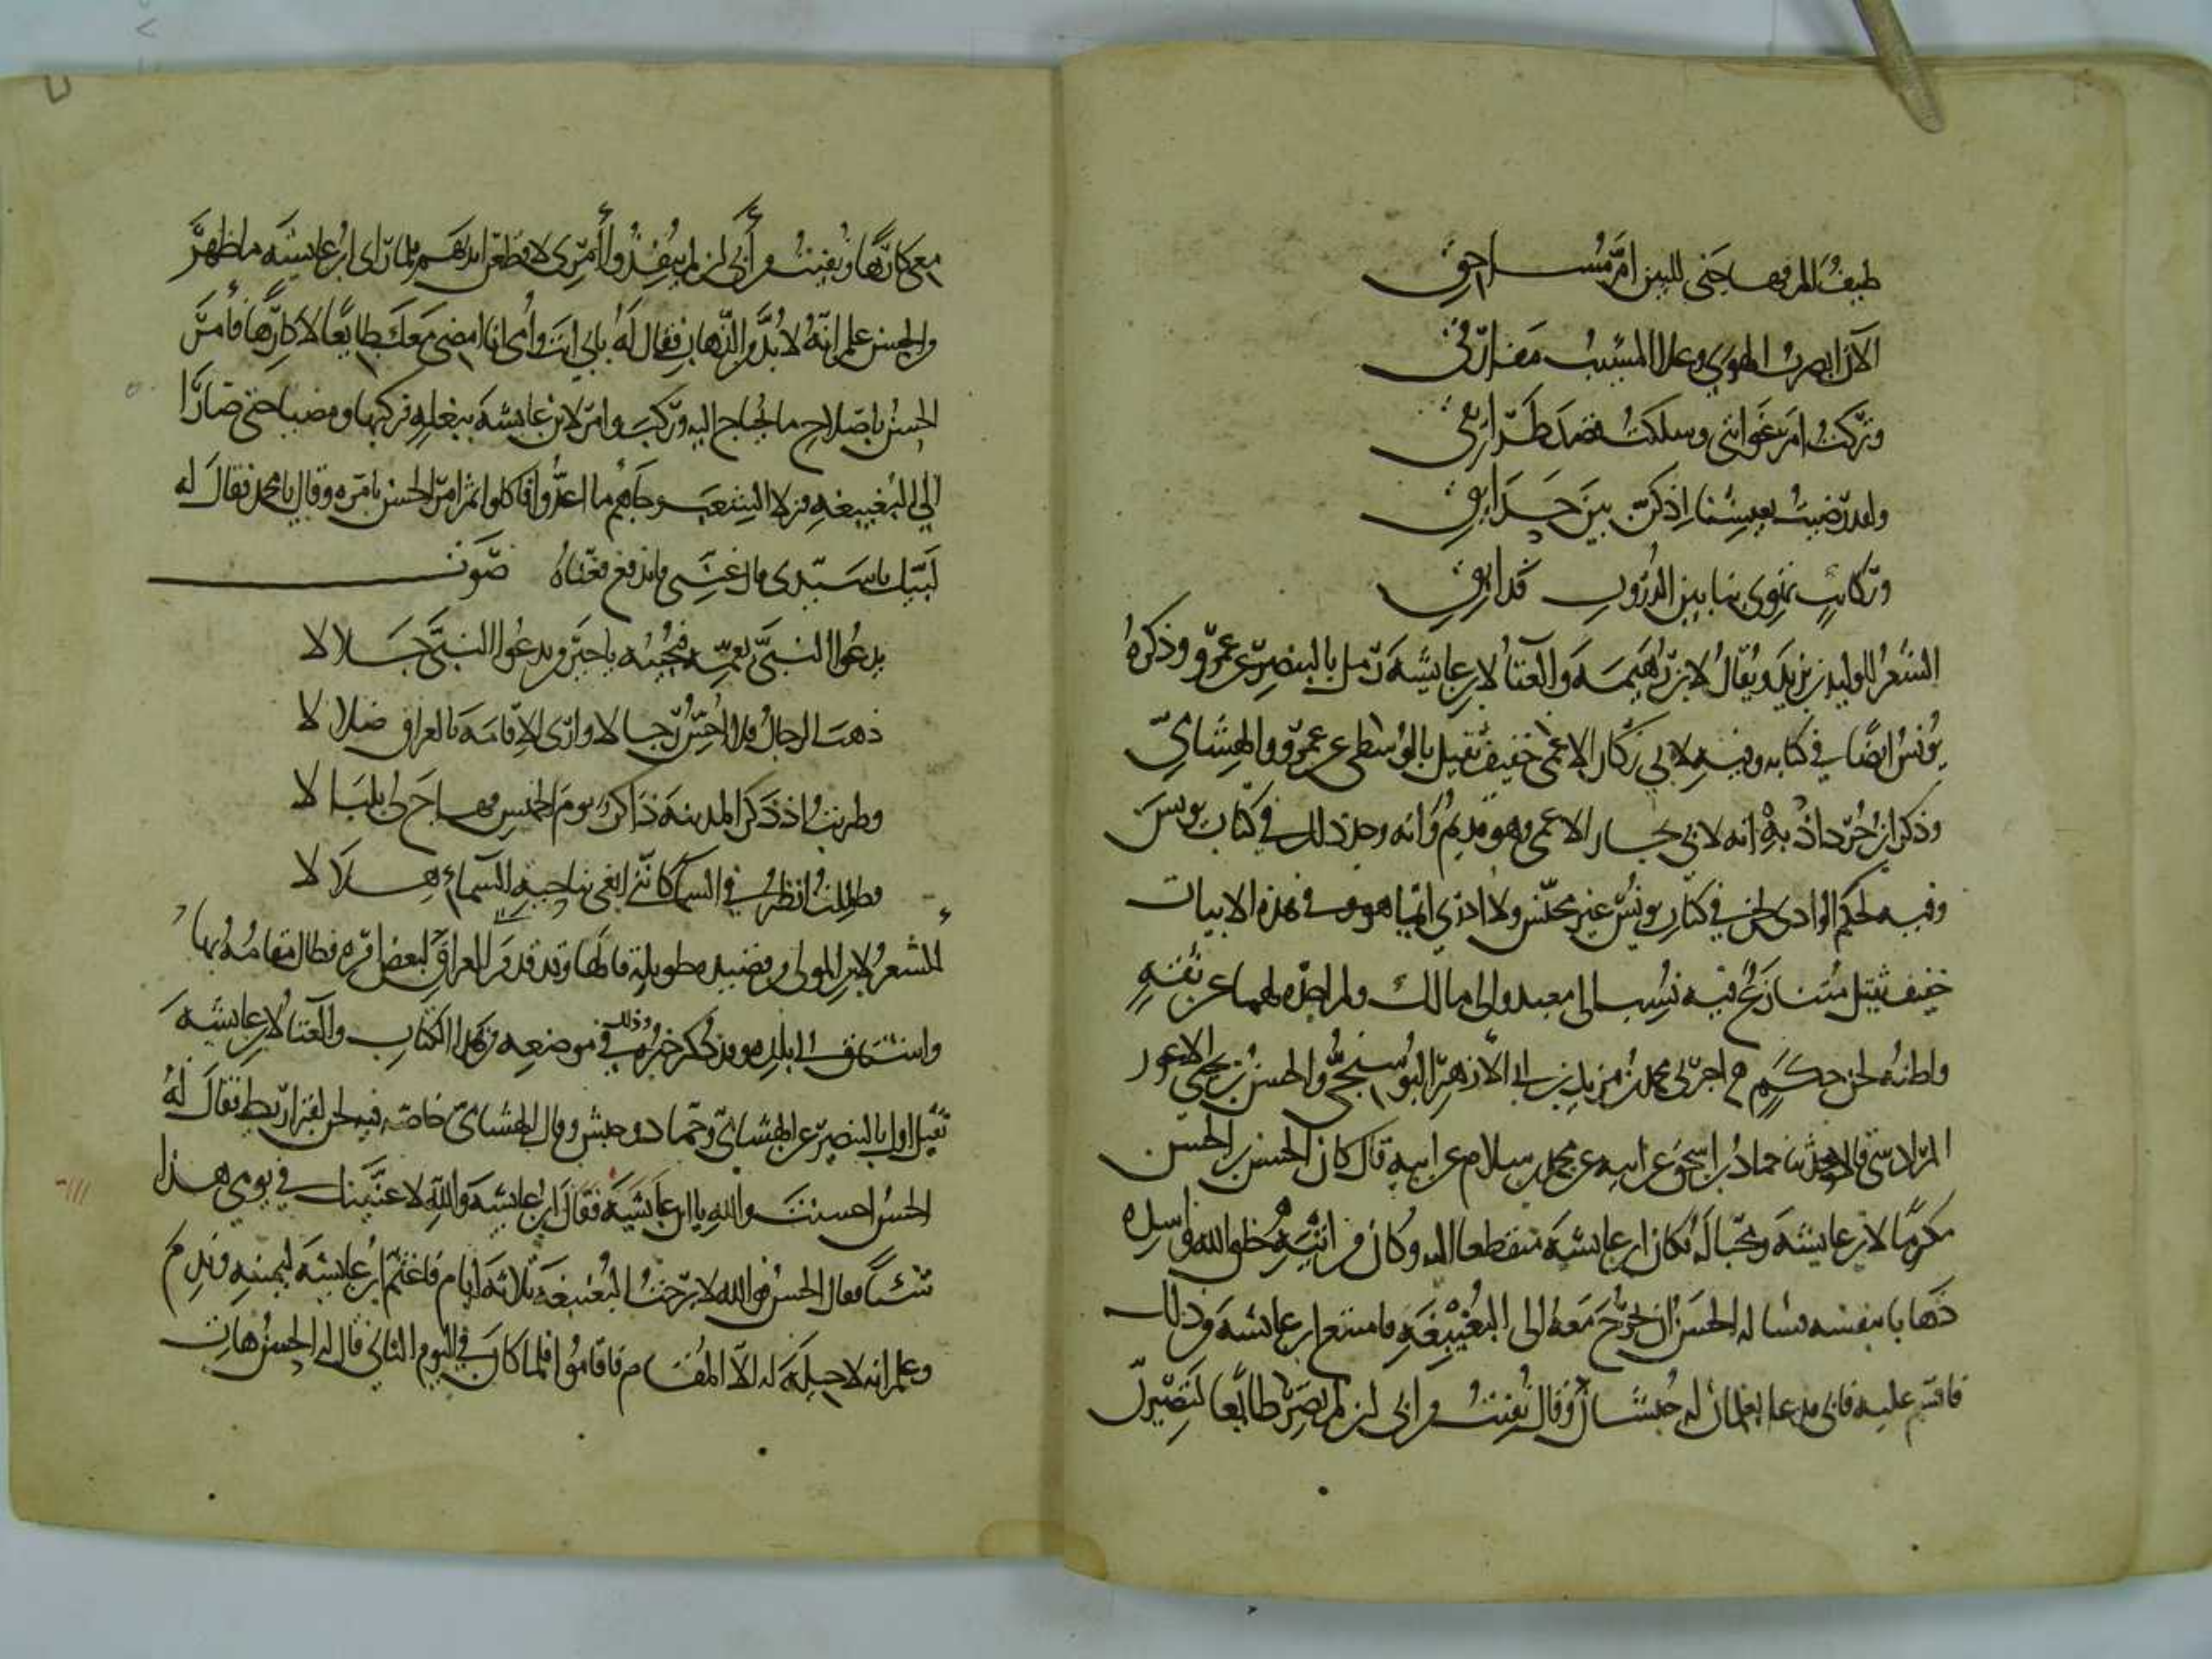 طيف ألم فهاجني للبين أم مساحق
الآن أبصرت الهوى وعلا المشيب مفارقي
وتركت أمر غوايتي وسلكت قصد طرائقي
ولقد رضيت بعيشنا إذ كن بين حدائق
وركائب تهوي بنا بين الدروب فدابق
الشعر للوليد بن يزيد ويقال لابن رهيمة والغناء لابن عائشة رمل بالبنصر عن عمرو وذكره
يونس ايضا في كتابه وفيه لابي زكار الاعمى خفيف ثقيل بالوسطى عن عمرو والهشامي
وذكر ابن خرداذبه انه لابي زكار الاعمى وهو قديم وانه وجد ذلك في كتاب يونس
وفيه لحكم الوادي لحن في كتاب يونس غير مجنس ولا ادري ايها هو وفي هذه الابيات
خفيف ثقيل متنازع فيه نسب الى معبد والى مالك ولم اجده لهما عن ثقة
واظنه لحن حكم اخبرني محمد بن مزيد بن ابي الازهر البوسنجي والحسن بن يحيى الاعور
المرادسي قالا حدثنا حماد بن اسحق عن ابيه عن محمد بن سلام عن ابيه قال كان الحسن بن الحسن
مكرما لابن عائشة ومحبا له وكان ابن عائشة منقطعا اليه وكان من اتيه خلق الله واسده
ذهابا بنفسه فسأله الحسن ان يخرج معه الى البغيبغة فامتنع ابن عائشة من ذلك
فاقسم عليه فابى فدعا بغلمان له حبشان وقال نفيت من ابي لئن لم تصر طائعا لتصيرن
معي كارها ونفيت من أبي لئن لم ينفذوا أمري لاقطعن ايديهم فلما راى ابن عائشة ما ظهر
من الحسن علم انه لا بد من الذهاب فقال له بابي انت وأمي انا امضي معك طايعا لا كارها فأمر
الحسن باصلاح ما يحتاج اليه وركب وامر لابن عائشة ببغلة فركبها ومضيا حتى صارا
الى البغيبغة فنزلا الشعب وجاهم ما اعدوا فاكلوا ثم امر الحسن بامره وقال يا محمد فقال له
لبيك يا سيدي قال غنني فاندفع فغناه صوت
يدعو النبي بعمه فيجيبه يا خير من يدعو النبي جلالا
ذهب الرجال فلا احس رجالا وارى الاقامة بالعراق ضلالا
وطربت اذ ذكر المدينة ذاكر يوم الخميس فهاج لي بلبالا
وظللت انظر في السماء كانني ابغي بناحية السماء هلالا
الشعر لابن المولى من قصيدة طويلة قالها وقد قدم الى العراق لبعض امره فطال مقامه بها
واشتاق الى بلده وقد ذكر خبره وذلك في موضعه من هذا الكتاب والغناء لابن عائشة
ثقيل اول بالبنصر عن الهشامي وحماد وحبش وقال الهشامي خاصة فيه لحن لقراريط فقال له
الحسن احسنت والله يا ابن عائشة فقال ابن عائشة والله لا غنيتك في يومي هذا
شيئا فقال الحسن فوالله لا برحت البغيبغة ثلاثة ايام فاغتم ابن عائشة ليمينه وندم
وعلم انه لا حيلة له الا المقام فاقاموا فلما كان في اليوم الثاني قال له الحسن هات